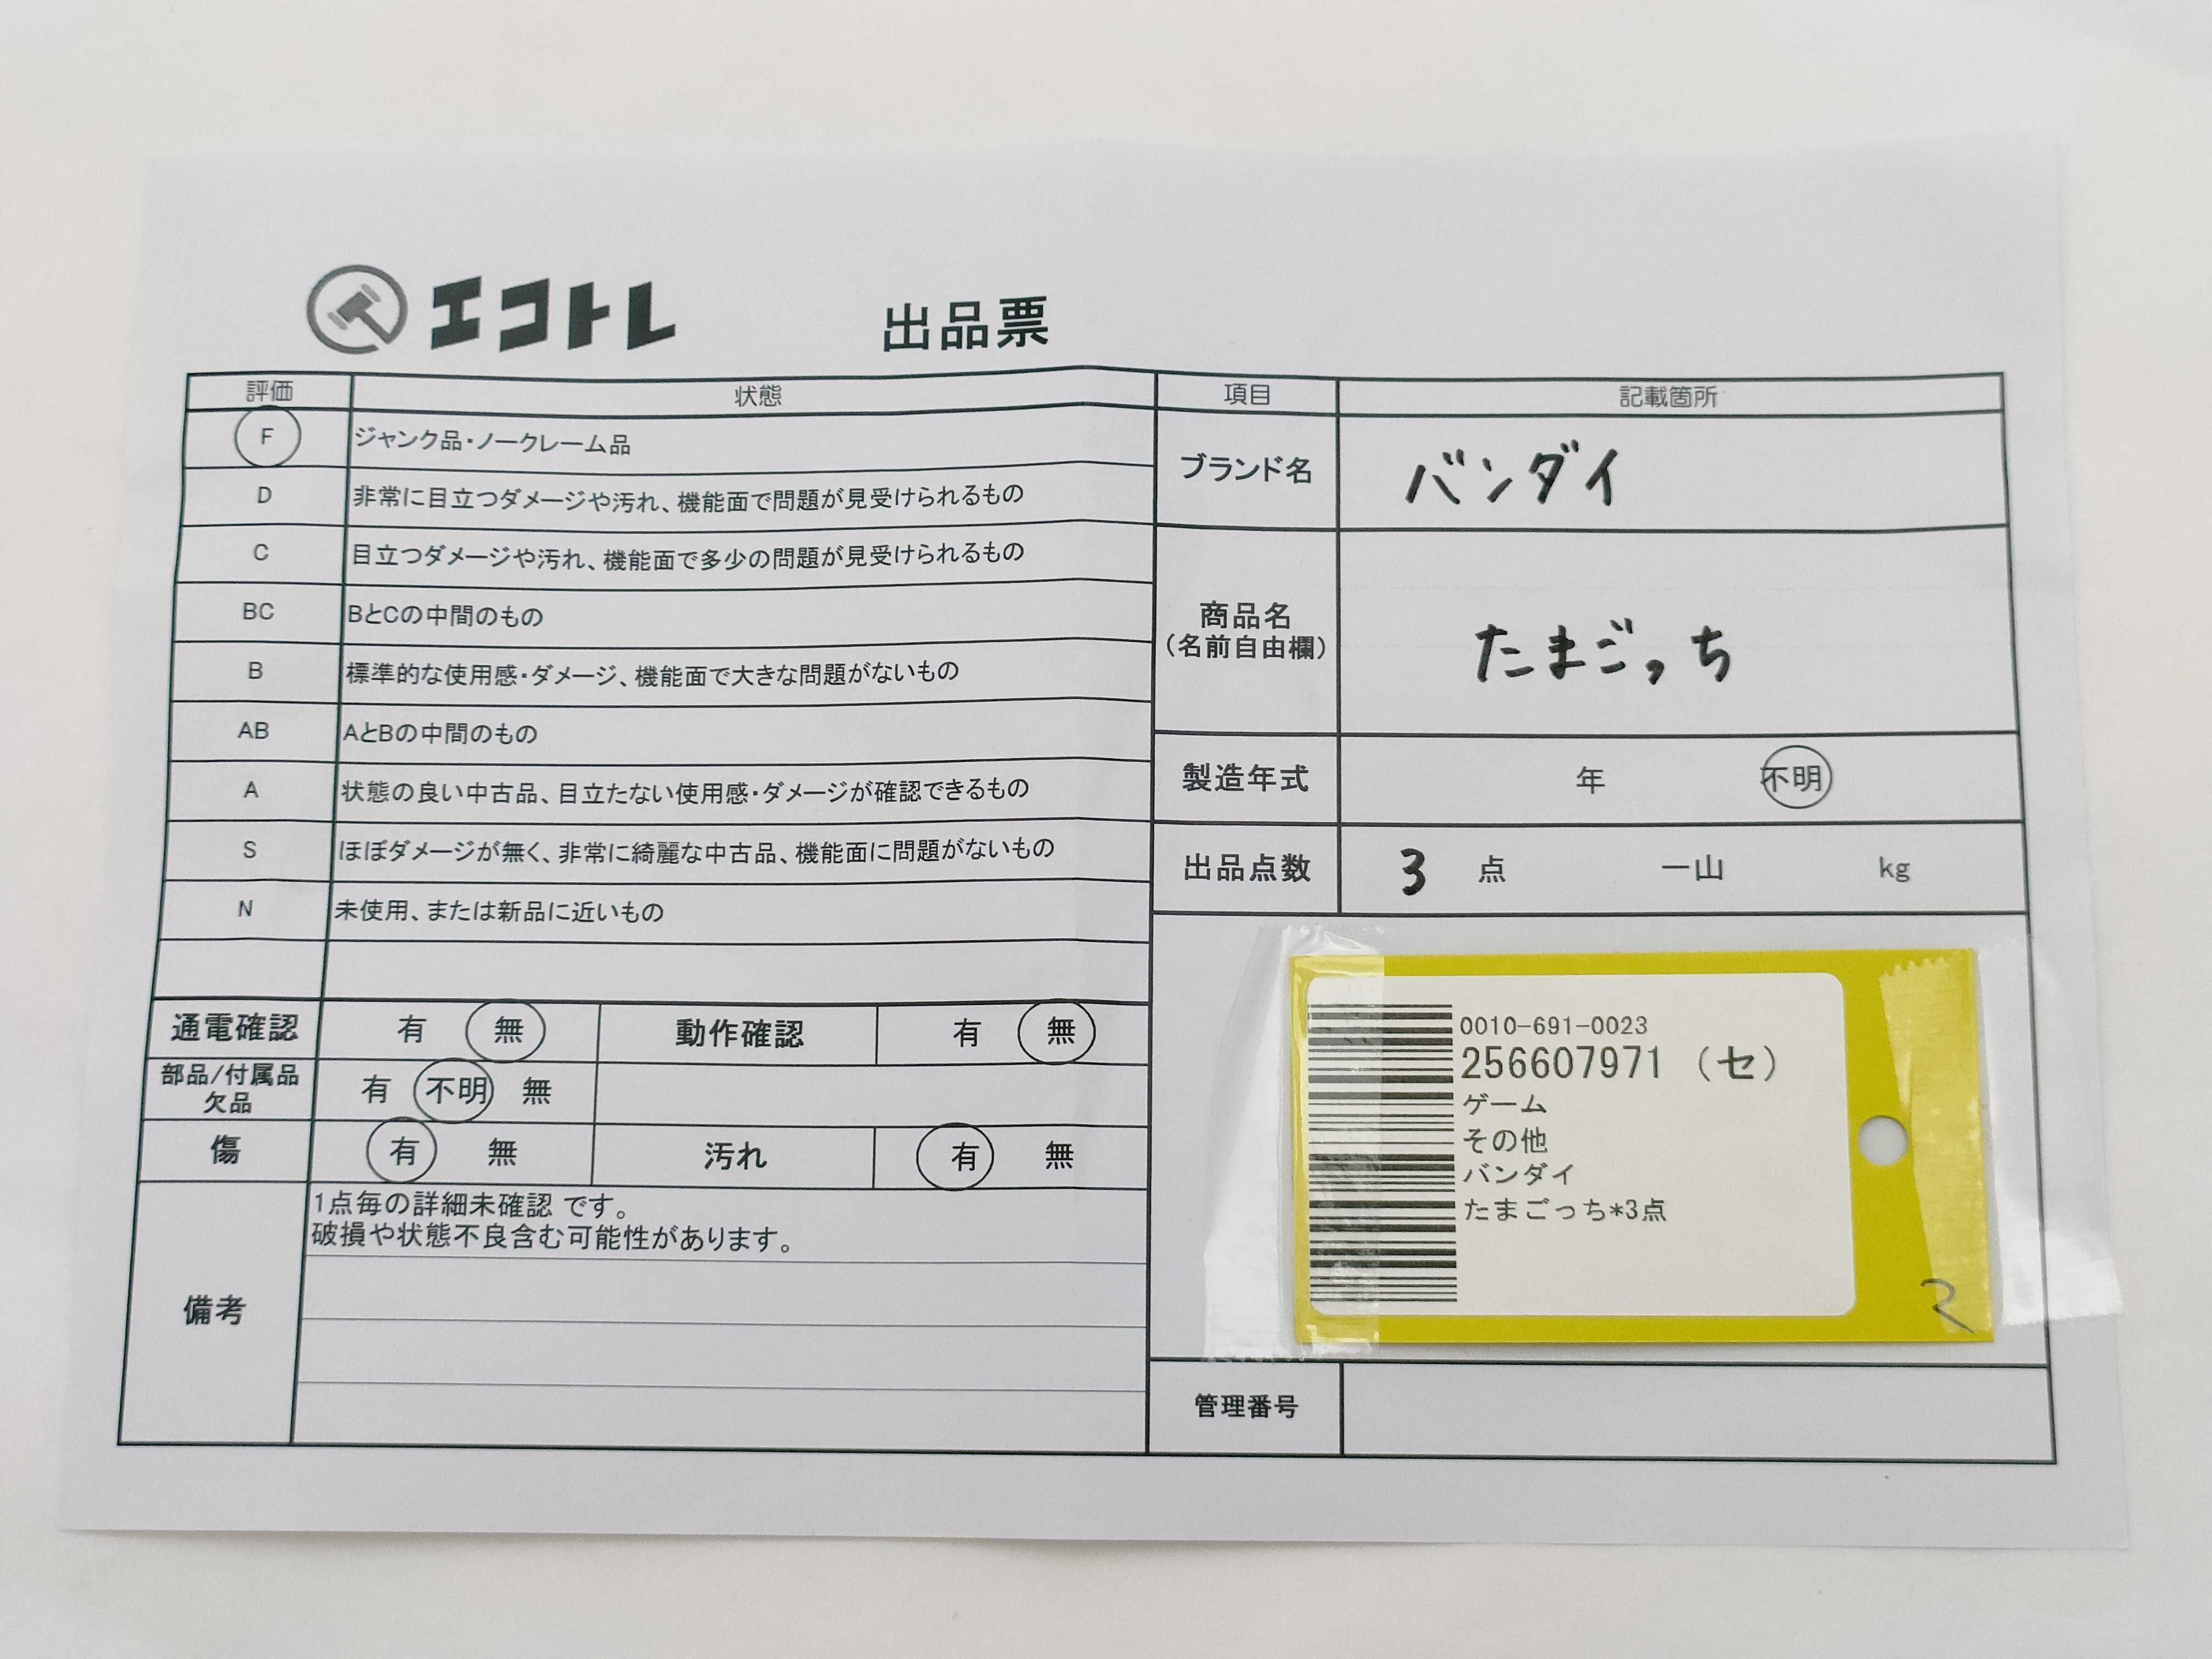 エコトレ 出品票
評価 状態
F ジャンク品・ノークレーム品
D 非常に目立つダメージや汚れ、機能面で問題が見受けられるもの
C 目立つダメージや汚れ、機能面で多少の問題が見受けられるもの
BC BとCの中間のもの
B 標準的な使用感・ダメージ、機能面で大きな問題がないもの
AB AとBの中間のもの
A 状態の良い中古品、目立たない使用感・ダメージが確認できるもの
S ほぼダメージが無く、非常に綺麗な中古品、機能面に問題がないもの
N 未使用、または新品に近いもの
通電確認 有 無 動作確認 有 無
部品/付属品
欠品 有 不明 無
傷 有 無 汚れ 有 無
備考
1点毎の詳細未確認 です。
破損や状態不良含む可能性があります。
項目 記載箇所
ブランド名 バンダイ
商品名
(名前自由欄) たまごっち
製造年式 年 不明
出品点数 3 点 一山 kg
0010-691-0023
256607971 (セ)
ゲーム
その他
バンダイ
たまごっち*3点
管理番号